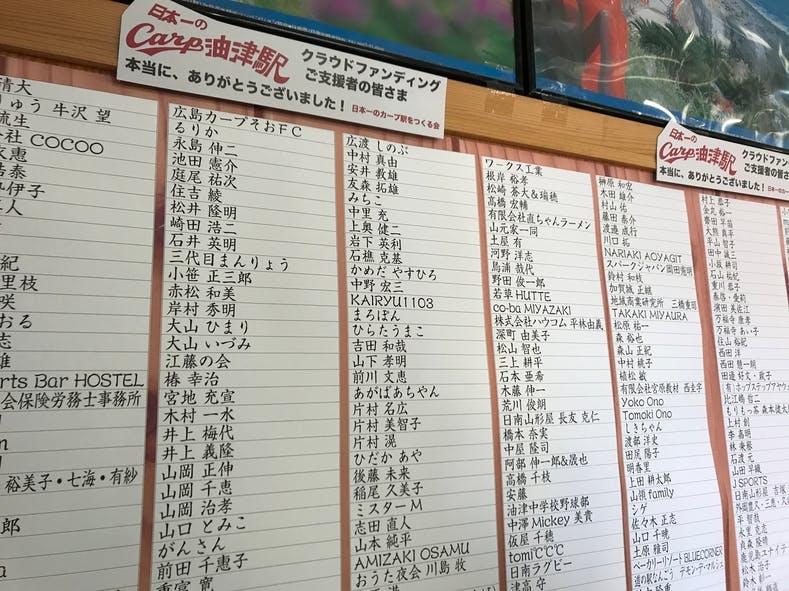 日本一の
Carp油津駅
クラウドファンディング
ご支援者の皆さま
本当に、ありがとうございました！
日本一のカープ駅をつくる会
日本一の
Carp油津駅
クラウドファン
ご支援者の皆さ
本当に、ありがとうございました！
清大
りゅう 牛沢 望
流生
社 COCOO
恵
浩泰
伊子
紀
里枝
咲
おる
志
雄
rts Bar HOSTEL
会保険労務士事務所
裕美子・七海・有紗
郎
広島カープそおFC
るりか
永島 伸二
池田 憲介
庭尾 祐次
住吉 綾
松井 隆明
崎田 浩二
石井 英明
三代目まんりょう
小笹 正三郎
赤松 和美
岸村 秀明
大山 ひまり
大山 いづみ
江藤の会
椿 幸治
宮地 充宣
木村 一水
井上 梅代
井上 義隆
山岡 正伸
山岡 千恵
山岡 治孝
山口 とみこ
がんさん
前田 千恵子
広渡 しのぶ
中村 真由
安井 敦雄
友森 拓雄
みちこ
中里 充
上奥 健二
岩下 英利
石樵 克基
かめだ やすひろ
中野 宏三
KAIRYU1103
まろぽん
ひらたうまこ
吉田 和哉
山下 孝明
前川 文恵
あがぱあちやん
片村 名広
片村 美智子
片村 滉
ひだか あや
後藤 未来
稲尾 久美子
ミスターM
志田 直人
山本 純平
AMIZAKI OSAMU
おうた夜会 川島 牧
ワークス工業
根岸 裕孝
松崎 茶大&瑞穂
高橋 宏輔
有限会社直ちゃんラーメン
山元家一同
土屋 有
河野 洋志
鳥浦 哉代
野田 俊一郎
若草HUTTE
co-ba MIYAZAKI
株式会社ハウコム 平林由義
深町 由美子
松山 智也
三上 耕平
石本 亜希
木藤 伸一
荒川 俊朗
日南山形屋 長友 克仁
橋本 奈実
中屋 隆司
阿部 伸一郎&晟也
高橋 千枝
安藤
油津中学校野球部
中澤 Mickey 美貴
仮屋 千穂
tomiCCC
日南ラグビー
津高 守
榊原 和宏
木田 雄介
村山 佑
藤田 泰介
渡邉 成行
川口 拓
NARIAKI AOYAGIT
スパークジャパン岡田憲明
鈴村 和枝
加賀城 正継
地域商業研究所 三橋重昭
TAKAKI MIYAURA
松原 祐一
森 裕也
森山 正紀
中村 桃子
植松 敏
有限会社宮原教材 西圭宇
Yoko Ono
Tomoki Ono
しきちゃん
渡部 洋史
田尻 陽子
明香里
上田 耕太郎
山領family
シゲ
佐々木 正志
山口 千暁
土原 雅司
ベーカリーリゾートBLUECORNER
道の駅なんごう デモン・デ・マルシェ
村上 恭子
金丸 裕一
齋田 早苗
大熊 真平
平山 智子
田中 誠三
小坂 耕司
石山 紀子
重川 恭子
泰啓・愛莉
濱田 英佐江
万福寺 康孝
万福寺 あい子
住山 裕紀
西田 洋
西田 慧一朗
田邉 好文・政子
比江嶋 哲二
もりもっ茶 森本健太
上村 創
李 嘉明
林 秉毅
石渡 元
山田 早織
J SPORTS
平 智哉
永里 克志
貞森 隆明
鹿児島ユナイテ
松木 治子
鈴木 彰一